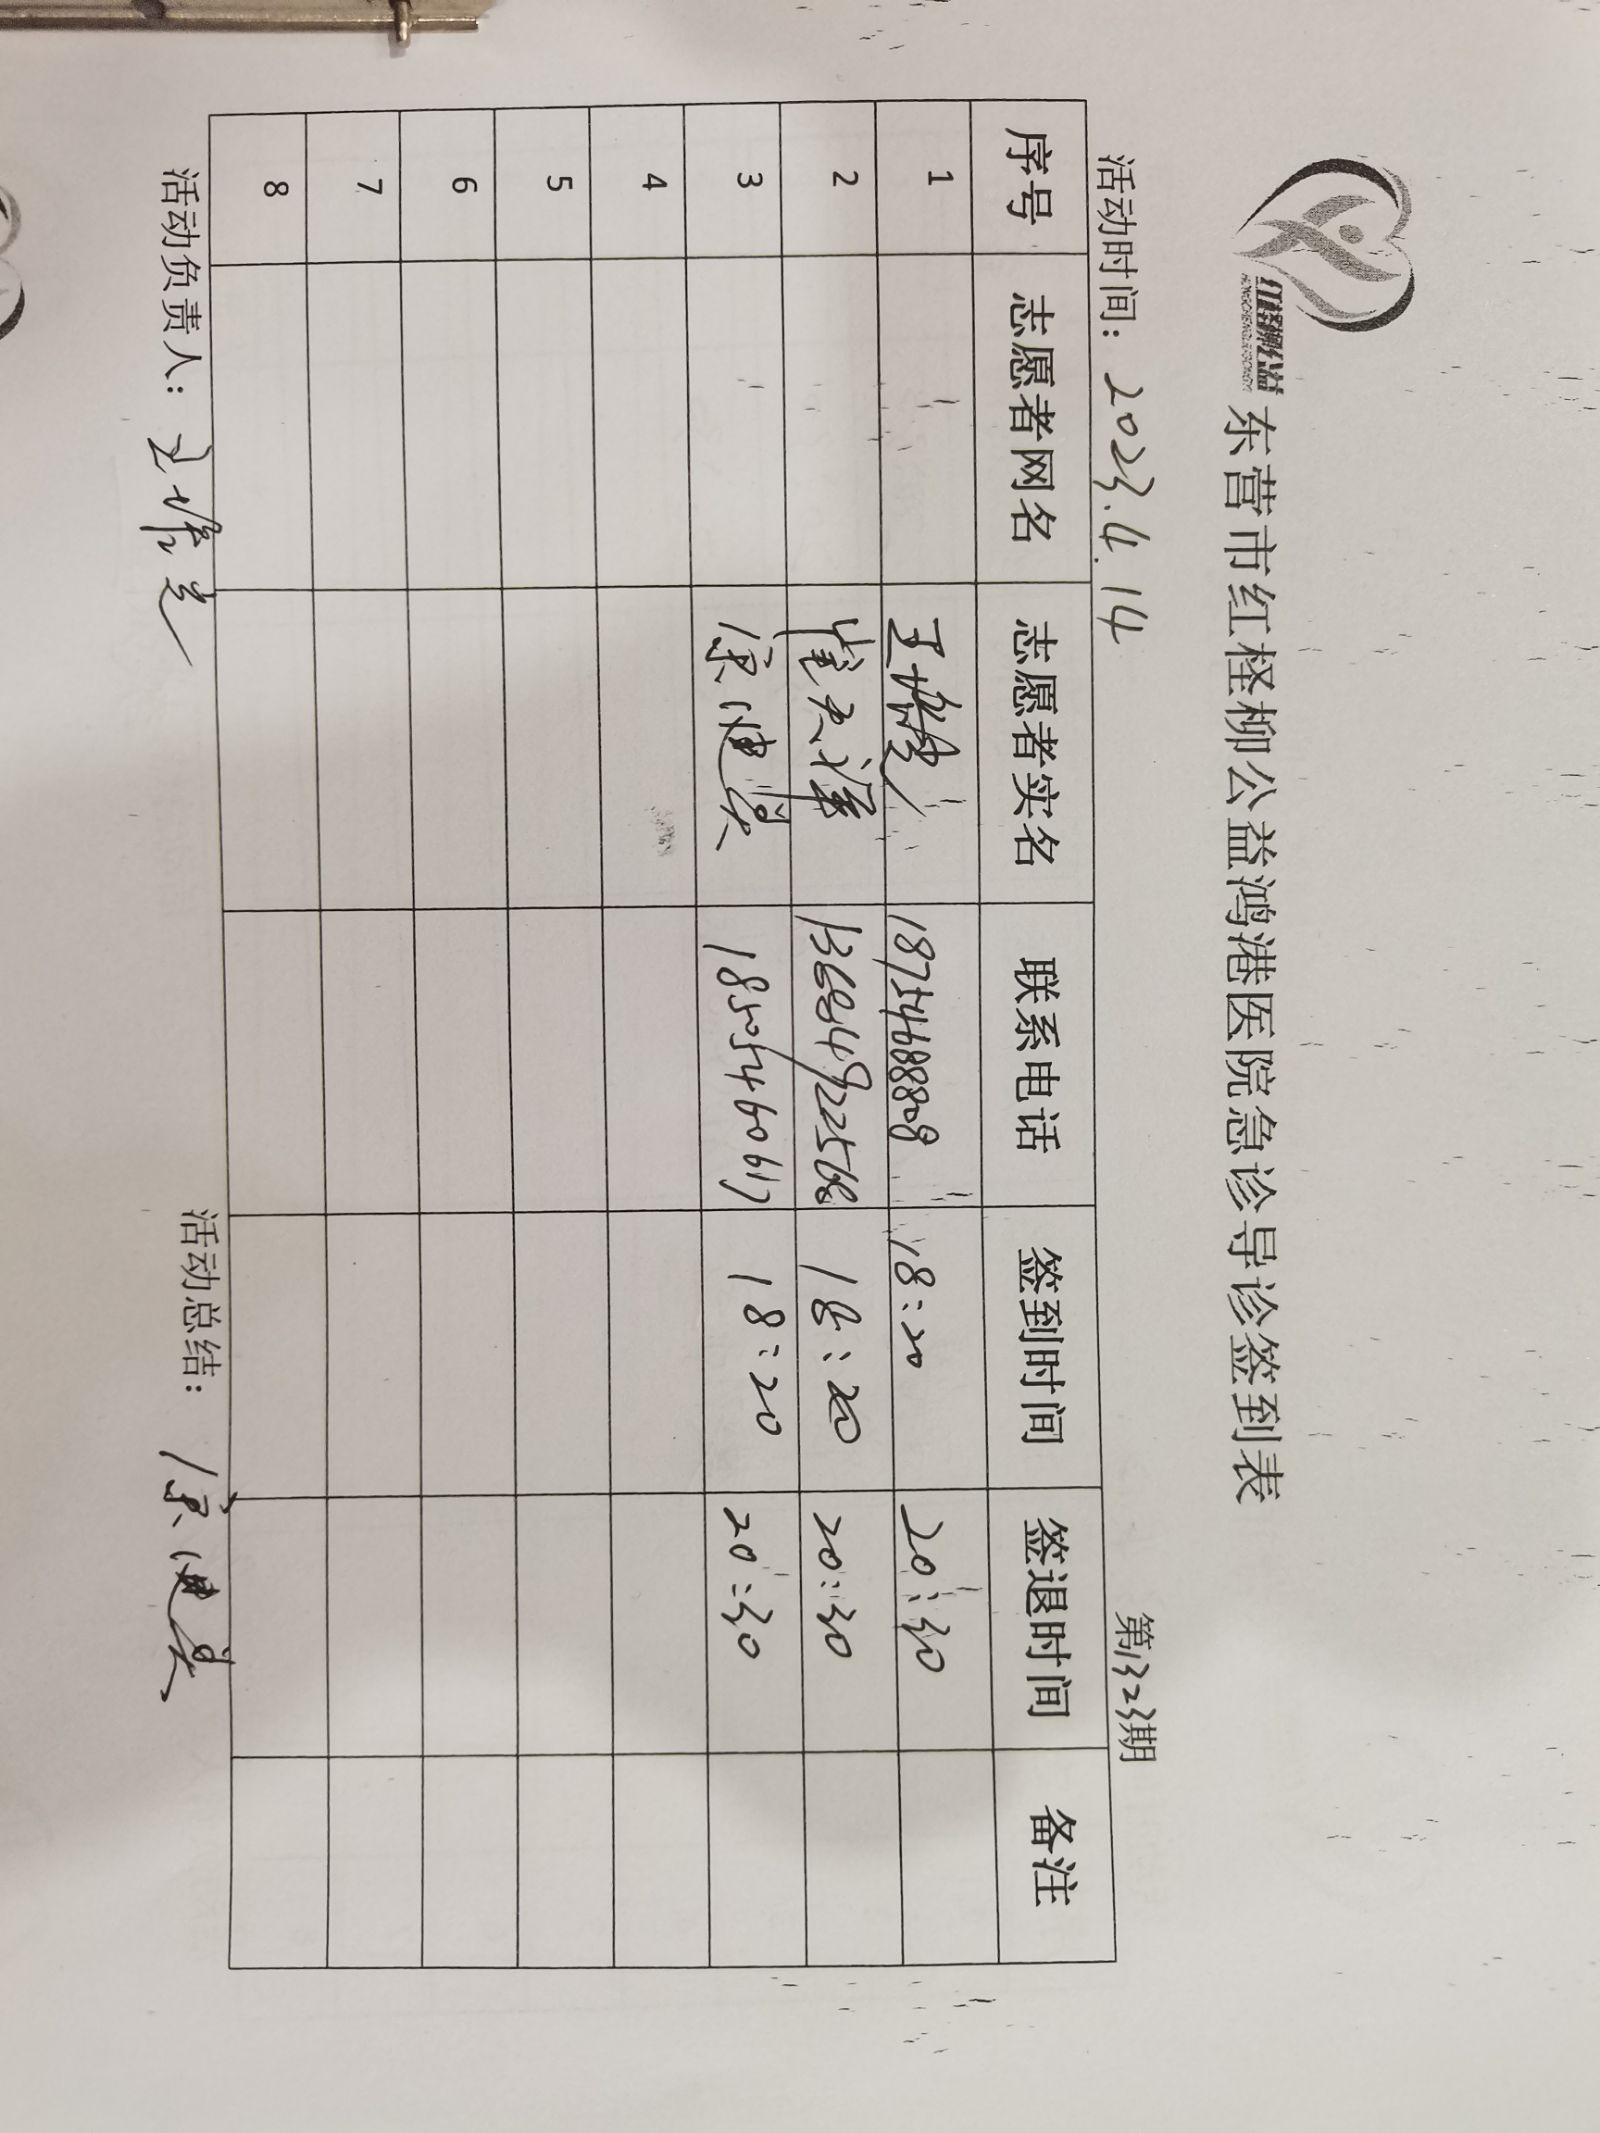 红柽柳公益
东营市红柽柳公益鸿港医院急诊导诊签到表
活动时间：2023.4.14 第1323期
序号 志愿者网名 志愿者实名 联系电话 签到时间 签退时间 备注
1 18754688808 18:20 20:30
2 崔 18:20 20:30
3 宋建英 18505460617 18:20 20:30
4
5
6
7
8
活动负责人： 活动总结：宋建英